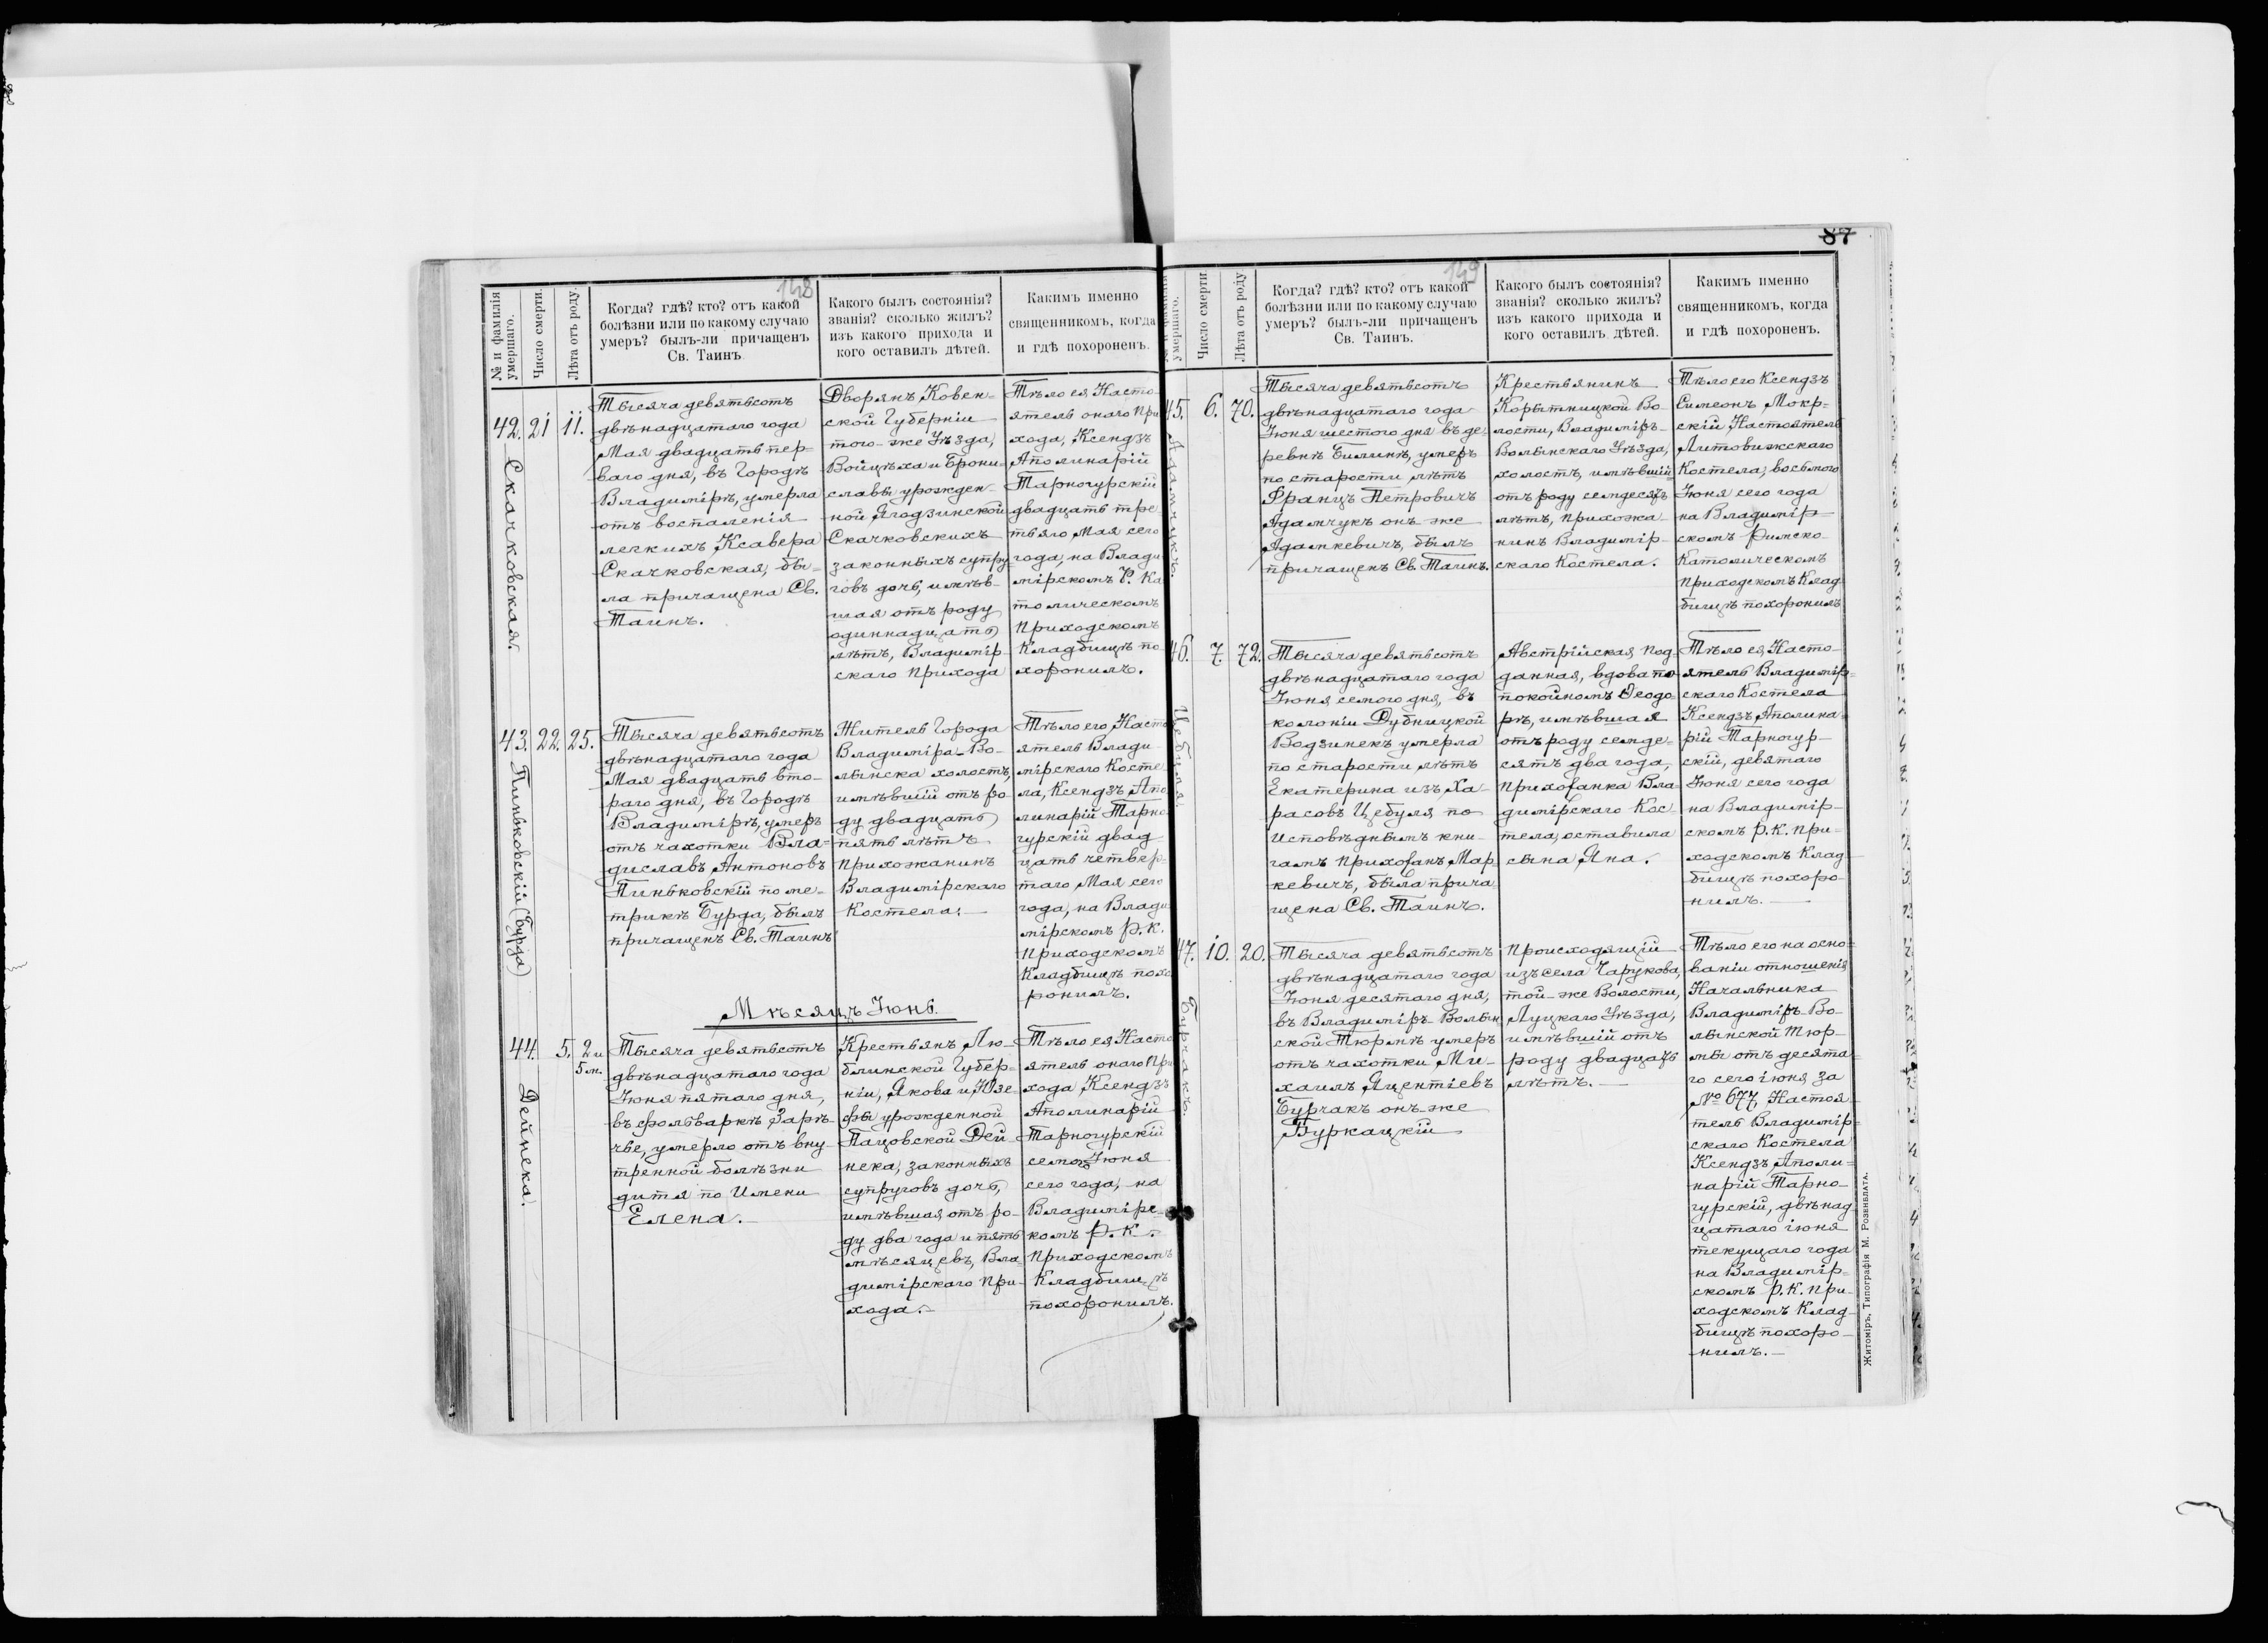 148
№ и фамилія умершаго.
Число смерти.
Лѣта отъ роду.
Когда? гдѣ? кто? отъ какой
болѣзни или по какому случаю
умеръ? былъ-ли причащенъ
Св. Таинъ.
Какого былъ состоянія?
званія? сколько жилъ?
изъ какого прихода и
кого оставилъ дѣтей.
Какимъ именно
священникомъ, когда
и гдѣ похороненъ.
42.
Скачковская.
21
11.
Тысяча девятьсотъ
двѣнадцатаго года
Мая двадцать пер-
ваго дня, въ Городѣ
Владимірѣ, умерла
отъ воспаленія
легкихъ Ксавера
Скачковская, бы-
ла причащена Св.
Таинъ.
Дворянъ Ковен-
ской Губерніи
того-же Уѣзда,
Войцѣха и Брони-
славы урожден-
ной Ягодзинской
Скачковскихъ
законныхъ супру-
говъ дочь, имѣв-
шая отъ роду
одиннадцать
лѣтъ, Владимір-
скаго Прихода
Тѣло ея Насто
ятель онаго При
хода, Ксендзъ
Аполинарій
Тарногурскій
двадцать тре
тьяго Мая сего
года, на Влади
мірскомъ Р. Ка
толическомъ
Приходскомъ
Кладбищѣ по
хоронилъ.
43.
Пиньковскій (Бурда)
22.
25.
Тысяча девятьсотъ
двѣнадцатаго года
Мая двадцать вто-
раго дня, въ Городѣ
Владимірѣ, умеръ
отъ чахотки Вла-
диславъ Антоновъ
Пиньковскій по ме-
трикѣ Бурда, былъ
причащенъ Св. Таинъ
Житель Города
Владиміра-Во-
лынска холостъ,
имѣвшій отъ ро-
ду двадцать
пять лѣтъ
Прихожанинъ
Владимірскаго
Костела.
Тѣло его Насто
ятель Влади
мірскаго Косте
ла, Ксендзъ Апо
линарій Тарно
гурскій двад
цать четвер-
таго Мая сего
года, на Влади
мірскомъ Р.К.
Приходскомъ
Кладбищѣ похо
ронилъ.
Мѣсяцъ Іюнь.
44.
Дейнека.
5.
2 и
5 м.
Тысяча девятьсотъ
двѣнадцатаго года
Іюня пятаго дня,
въ фольваркѣ Зарѣ-
чье, умерло отъ вну
тренной болѣзни
дитя по Имени
Елена.
Крестьянъ Лю-
блинской Губер-
ніи, Якова и Юзе-
фы урожденной
Пацовской Дей
нека, законныхъ
супруговъ дочь,
имѣвшая отъ ро-
ду два года и пять
мѣсяцевъ, Вла-
димірскаго При-
хода.
Тѣло ея Насто
ятель онаго При
хода Ксендзъ
Аполинарій
Тарногурскій
семого Іюня
сего года, на
Владимірс-
комъ Р.К.
Приходскомъ
Кладбищѣ
похоронилъ.
149
87
умершаго.
Число смерти.
Лѣта отъ роду
Когда? гдѣ? кто? отъ какой
болѣзни или по какому случаю
умеръ? былъ-ли причащенъ
Св. Таинъ.
Какого былъ состоянія?
званія? сколько жилъ?
изъ какого прихода и
кого оставилъ дѣтей.
Какимъ именно
священникомъ, когда
и гдѣ похороненъ.
45.
Адамчукъ.
6.
70.
Тысяча девятьсотъ
двѣнадцатаго года
Іюня шестого дня въ де-
ревнѣ Билинѣ, умеръ
по старости лѣтъ
Францъ Петровичъ
Адамчукъ онъ же
Адамкевичъ, былъ
причащенъ Св. Таинъ.
Крестьянинъ
Корытницкой Во-
лости, Владиміръ-
Волынскаго Уѣзда,
холостъ, имѣвшій
отъ роду семдесятъ
лѣтъ, прихожа-
нинъ Владимір-
скаго Костела.
Тѣло его Ксендзъ
Симеонъ Мокр-
скій Настоятель
Литовижскаго
Костела, восьмого
Іюня сего года
на Владимір-
скомъ Римско-
Католическомъ
Приходскомъ Клад-
бищѣ похоронилъ
46.
Цебуля.
7.
72.
Тысяча девятьсотъ
двѣнадцатаго года
Іюня семого дня, въ
колоніи Дубницкой
Водзинекъ умерла
по старости лѣтъ
Екатерина изъ Ха-
расовъ Цебуля по
Исповѣднымъ кни-
гамъ прихожанъ Мар-
кевичъ, была прича
щена Св. Таинъ.
Австрійская под-
данная, вдова по
покойномъ Ѳеодо-
рѣ, имѣвшая
отъ роду семде-
сятъ два года,
прихожанка Вла-
димірскаго Кос-
тела, оставила
сына Яна.
Тѣло ея Насто-
ятель Владимір-
скаго Костела
Ксендзъ Аполина-
рій Тарногур-
скій, девятаго
Іюня сего года
на Владимір-
скомъ Р.К. При-
ходскомъ Клад-
бищѣ похоро-
нилъ.
47.
Бурчакъ.
10.
20.
Тысяча девятьсотъ
двѣнадцатаго года
Іюня десятаго дня,
въ Владиміръ-Волын-
ской Тюрмѣ умеръ
отъ чахотки Ми-
хаилъ Яцентіевъ
Бурчакъ онъ-же
Буркацкій
Происходящій
изъ села Чарукова,
той-же Волости,
Луцкаго Уѣзда,
имѣвшій отъ
роду двадцать
лѣтъ.
Тѣло его на осно-
ваніи отношенія
Начальника
Владиміръ-Во-
лынской Тюр-
мы отъ десята-
го сего іюня за
№ 677, Настоя-
тель Владимір-
скаго Костела
Ксендзъ Аполи-
нарій Тарно-
гурскій, двѣнад
цатаго іюня
текущаго года
на Владимір-
скомъ Р.К. При-
ходскомъ Клад-
бищѣ похоро-
нилъ.
Житоміръ, Типографія М. Розенблата.